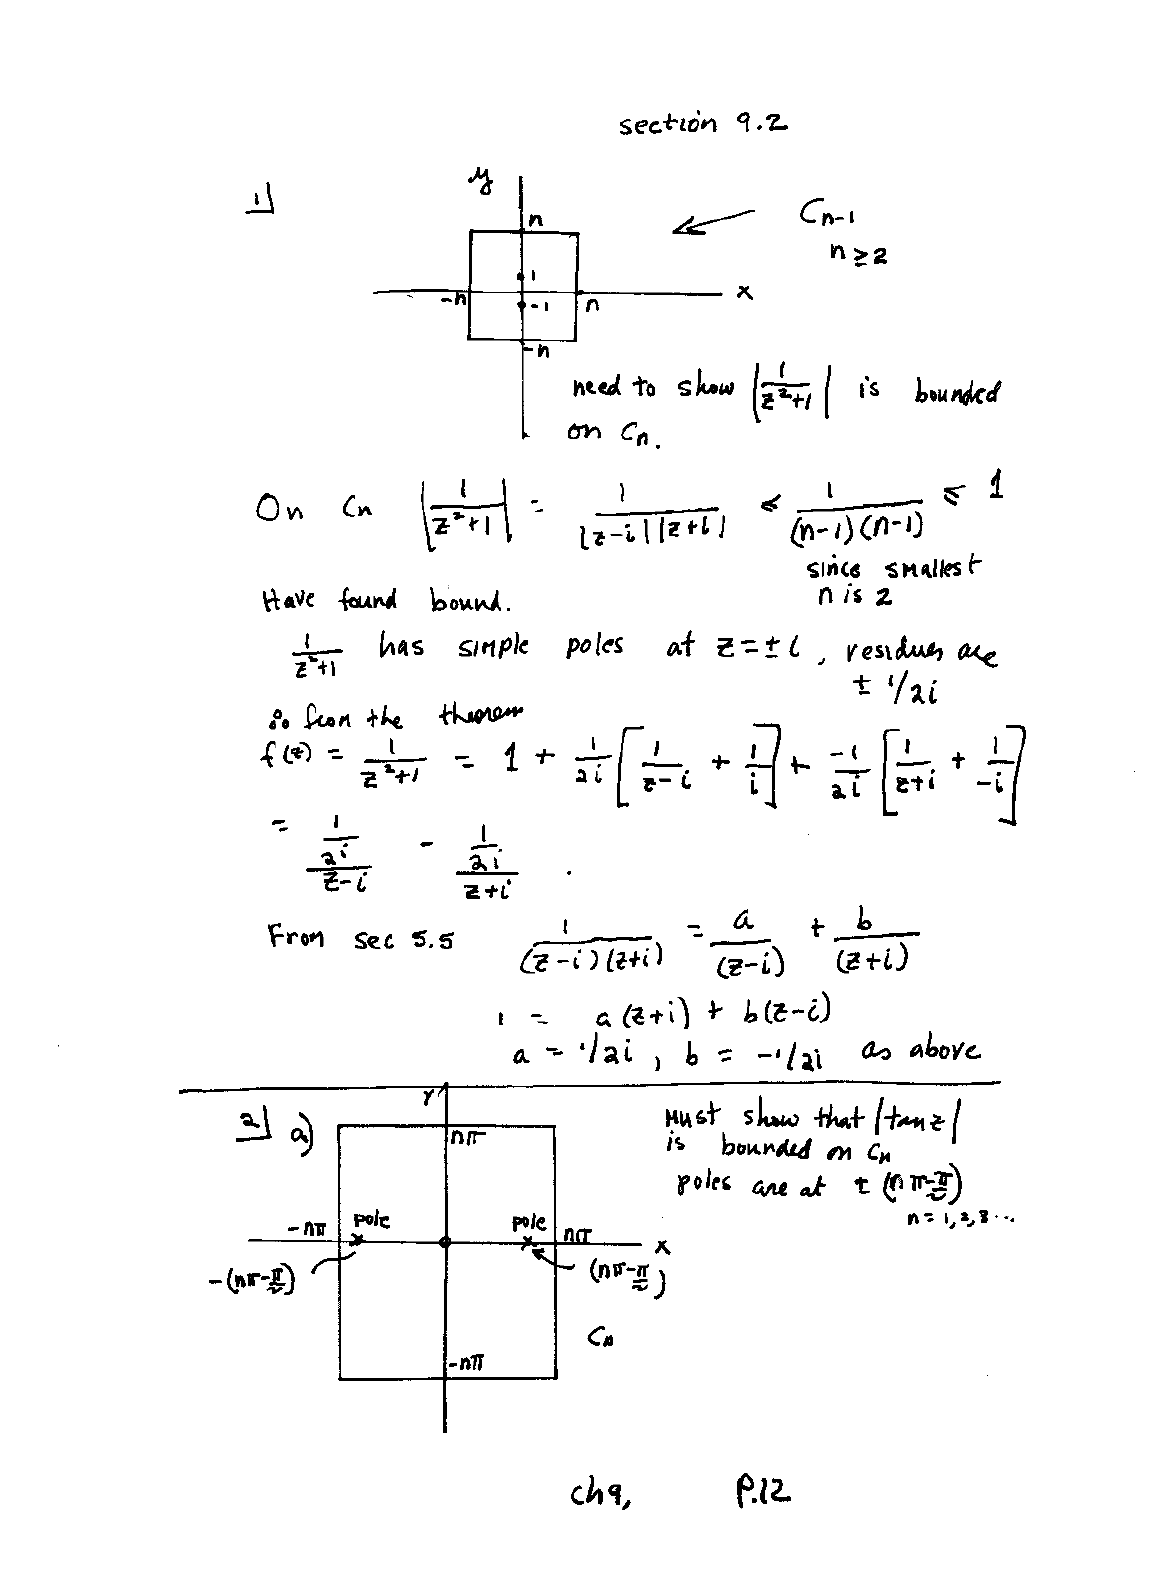 section 9.2
1)
y
n
C_{n-1}
n ≥ 2
1
-n
-1
n
x
-n
need to show |1/(z²+1)| is bounded
on Cn.
On Cn |1/(z²+1)| = 1/(|z-i||z+i|) ≤ 1/((n-1)(n-1)) ≤ 1
since smallest
n is 2
Have found bound.
1/(z²+1) has simple poles at z=±i, residues are
± 1/2i
∴ from the theorem
f(z) = 1/(z²+1) = 1 + 1/2i [1/(z-i) + 1/i] + -1/2i [1/(z+i) + 1/-i]
= (1/2i)/(z-i) - (1/2i)/(z+i) .
From sec 5.5 1/((z-i)(z+i)) = a/(z-i) + b/(z+i)
1 = a(z+i) + b(z-i)
a = 1/2i, b = -1/2i as above
2) a)
Y
nπ
Must show that |tan z|
is bounded on Cn
poles are at ± (nπ-π/2)
n = 1,2,3...
-nπ
pole
pole
nπ
x
-(nπ-π/2)
(nπ-π/2)
Cn
-nπ
ch9, P.12